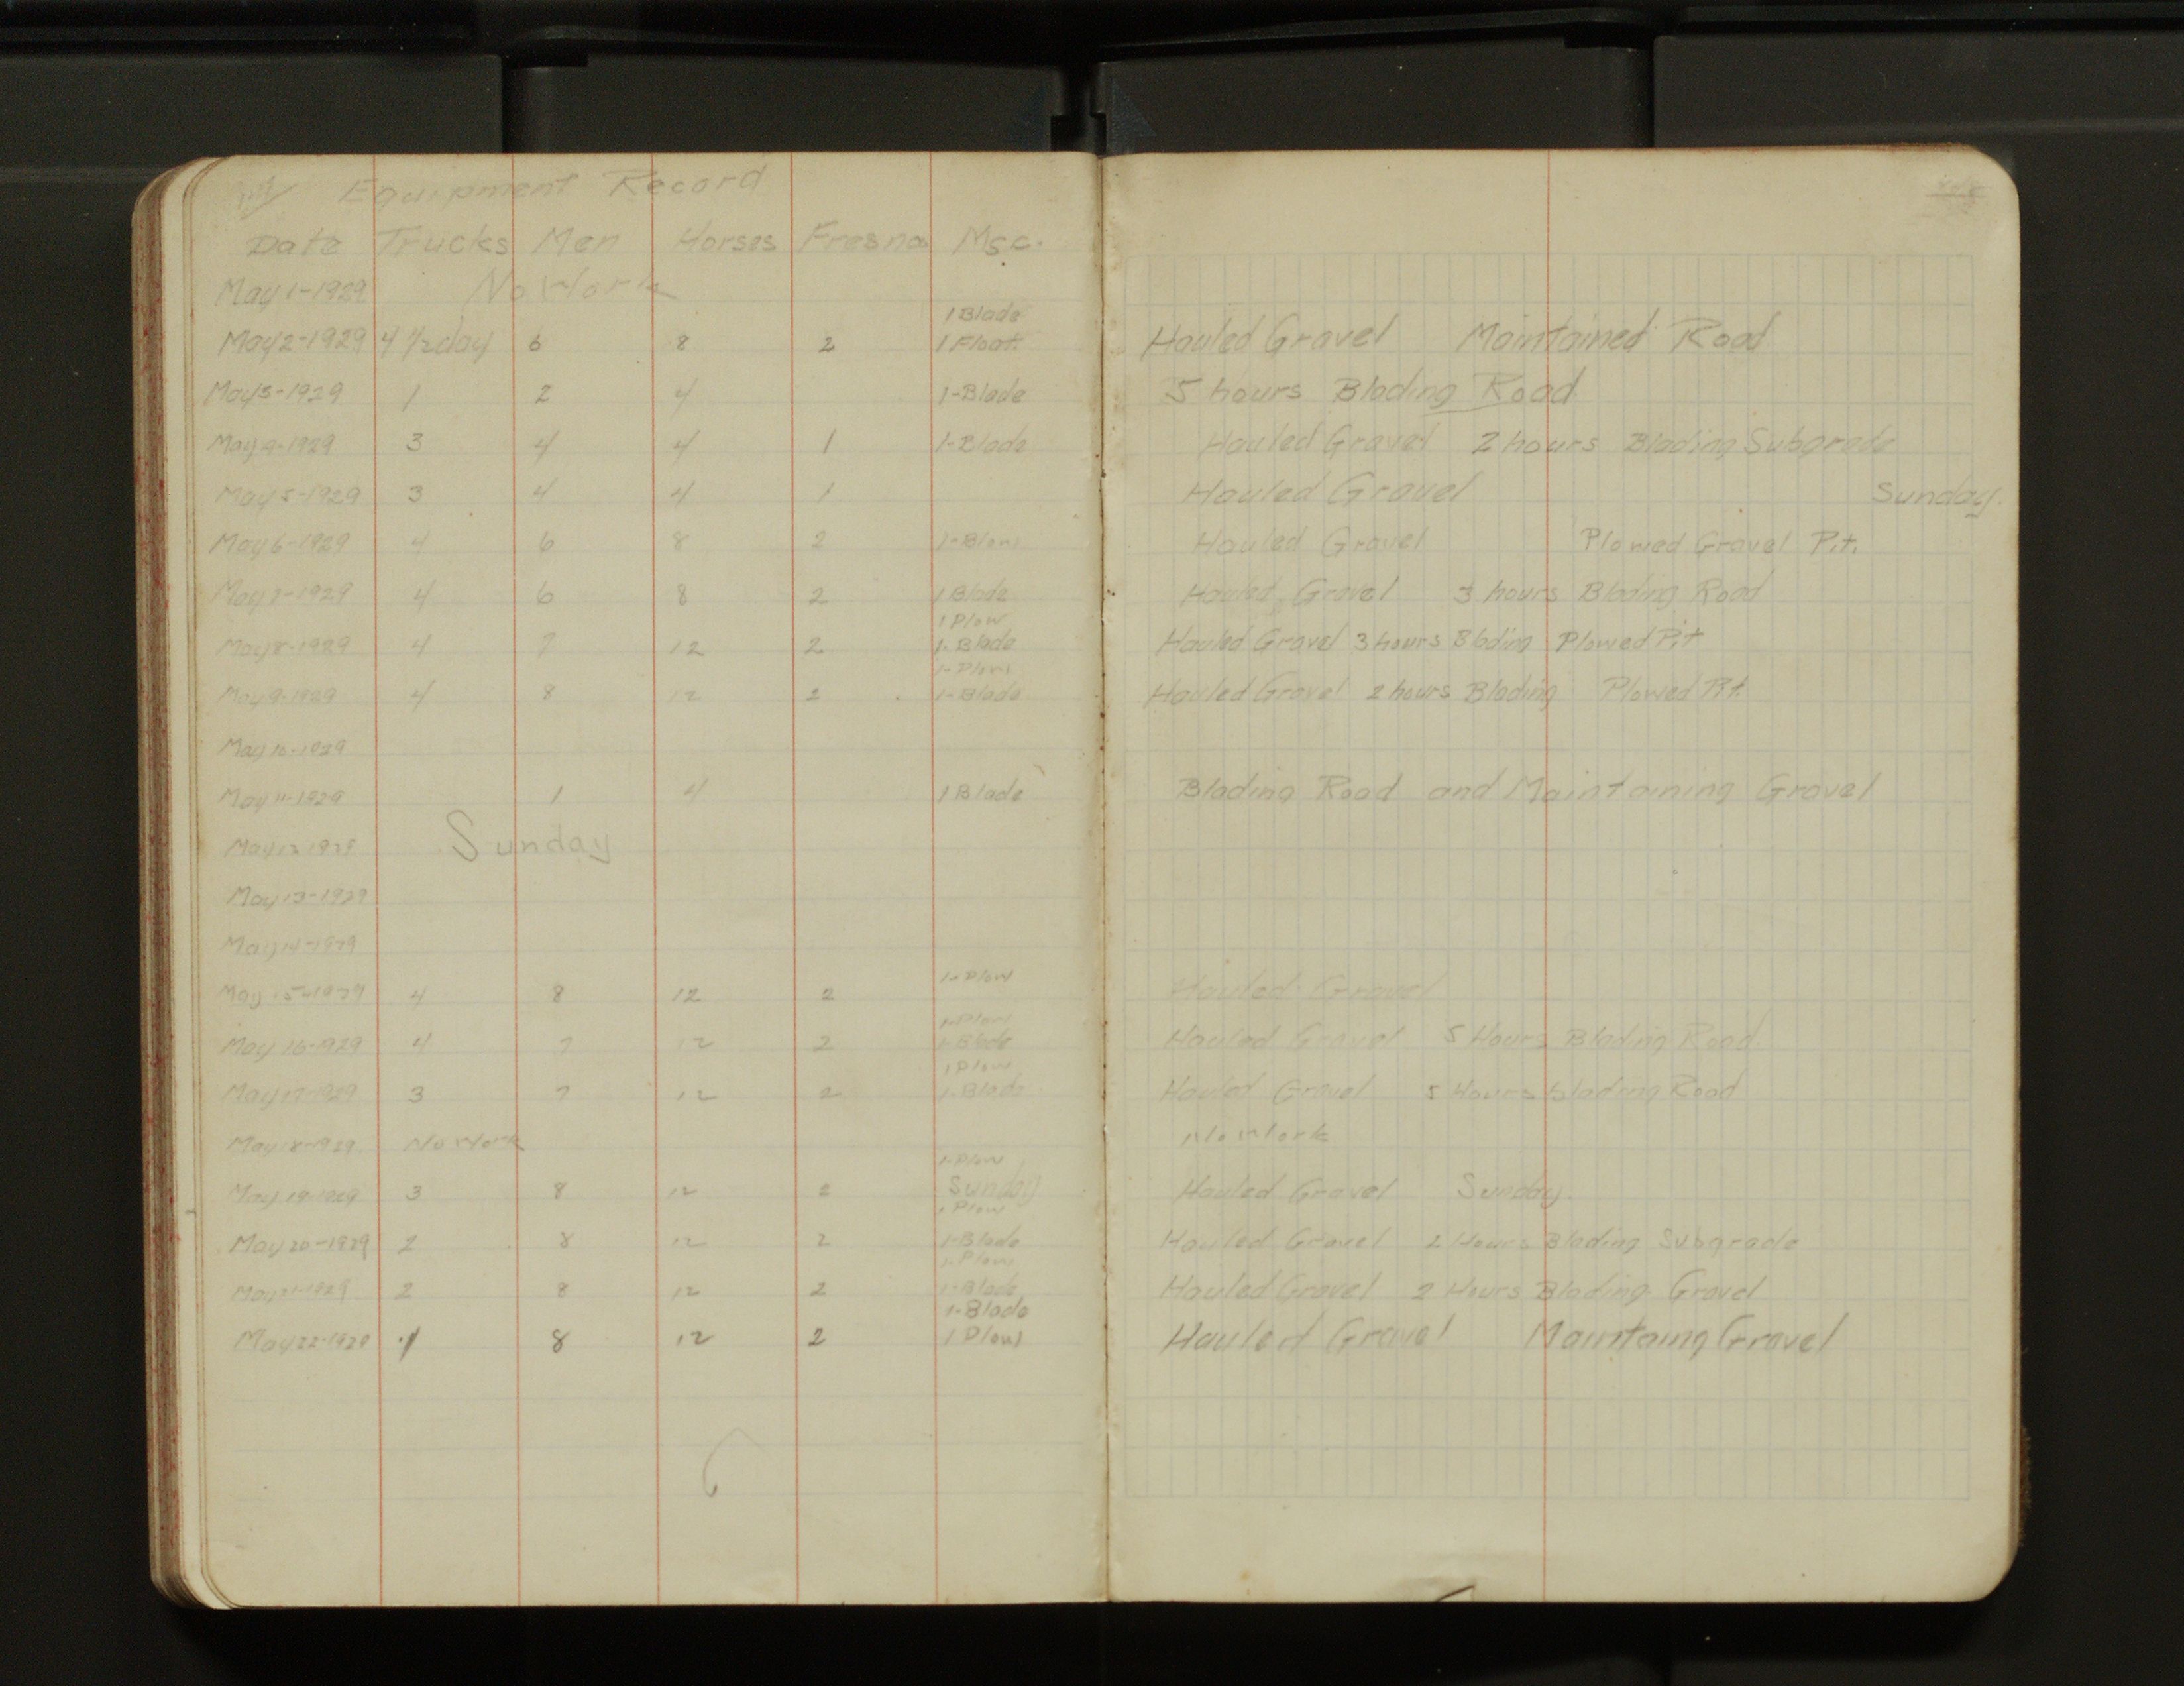 Equipment Record
Date Trucks Men Horses Fresno Msc.
May 1-1929 No Work
1 Blade
May 2-1929 4 1/2 day 6 8 2 1 Float Hauled Gravel Maintained Road
May 3-1929 1 2 4 1-Blade 5 hours Blading Road
May 4-1929 3 4 4 1 1-Blade Hauled Gravel 2 hours Blading Subgrade
May 5-1929 3 4 4 1 Hauled Gravel Sunday.
May 6-1929 4 6 8 2 1-Plow Hauled Gravel Plowed Gravel Pit.
May 7-1929 4 6 8 2 1 Blade Hauled Gravel 3 hours Blading Road
1 Plow
May 8-1929 4 7 12 2 1-Blade Hauled Gravel 3 hours Blading Plowed Pit
1-Plow
May 9-1929 4 8 12 2 1-Blade Hauled Gravel 2 hours Blading Plowed Pit.
May 10-1929
May 11-1929 1 4 1 Blade Blading Road and Maintaining Gravel
May 12 1929 Sunday
May 13-1929
May 14-1929
1-Plow
May 15-1929 4 8 12 2 Hauled Gravel
1-Plow
May 16-1929 4 7 12 2 1-Blade Hauled Gravel 5 Hours Blading Road
1 Plow
May 17-1929 3 7 12 2 1-Blade Hauled Gravel 5 Hours blading Road
May 18-1929 No Work No Work
1-Plow
May 19-1929 3 8 12 2 Sunday Hauled Gravel Sunday.
1 Plow
May 20-1929 2 8 12 2 1-Blade Hauled Gravel 2 Hours Blading Subgrade
1-Plow
May 21-1929 2 8 12 2 1-Blade Hauled Gravel 2 Hours Blading Gravel
1-Blade
May 22-1929 1 8 12 2 1 Plow Hauled Gravel Maintaing Gravel